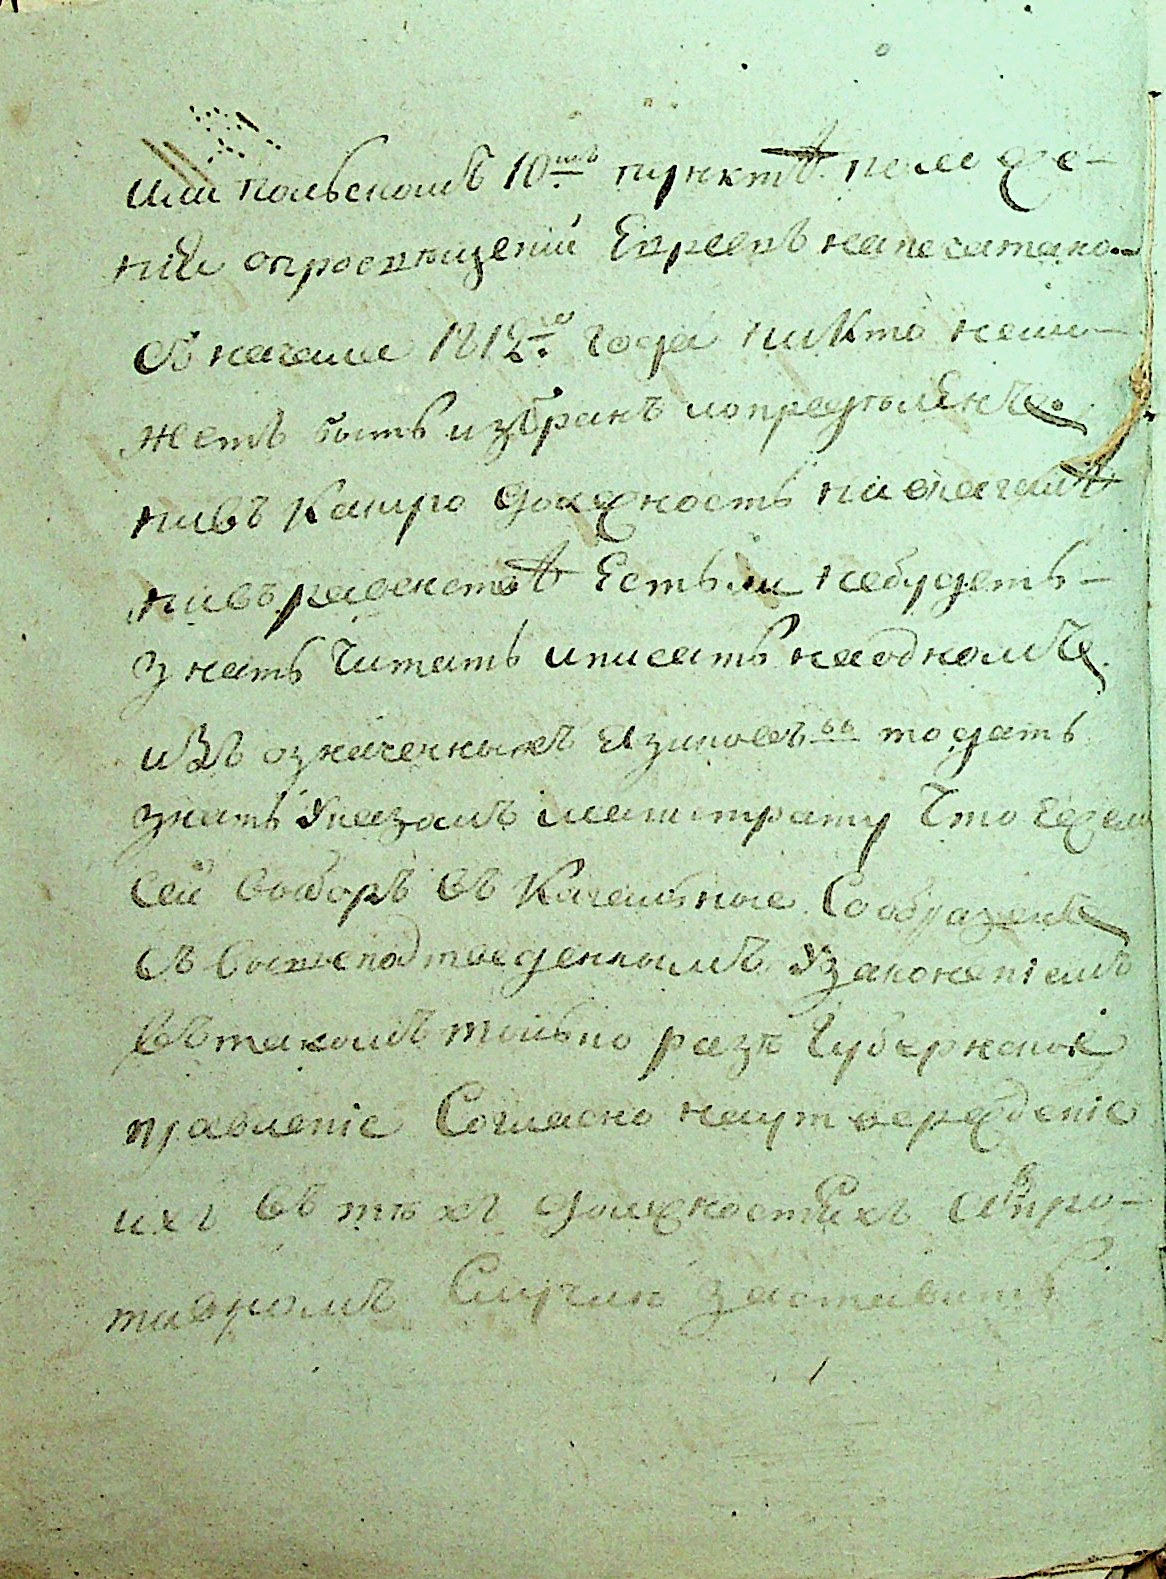 или польскомъ 10мъ пунктѣ положе-
нія опросвѣщеніи Евреевъ напечатано
съ начала 1812го года никто немо-
жетъ быть избранъ иопредѣленъ
нивъ какую должность ни вкагалѣ
нивъ равенствѣ Естьли небудетъ
знать читать иписать наодномъ
изъ означенныхъ языковъ то дать
знать указомъ магистрату что
сей выборъ въ кагальные Соображенъ
съ вышеподтведеннымъ узаконеніемъ
въ такомъ только разѣ Губернское
правленіе Согласно наутвержденіе
ихъ въ тѣхъ должностяхъ впро-
тивномъ Случаи заставитъ